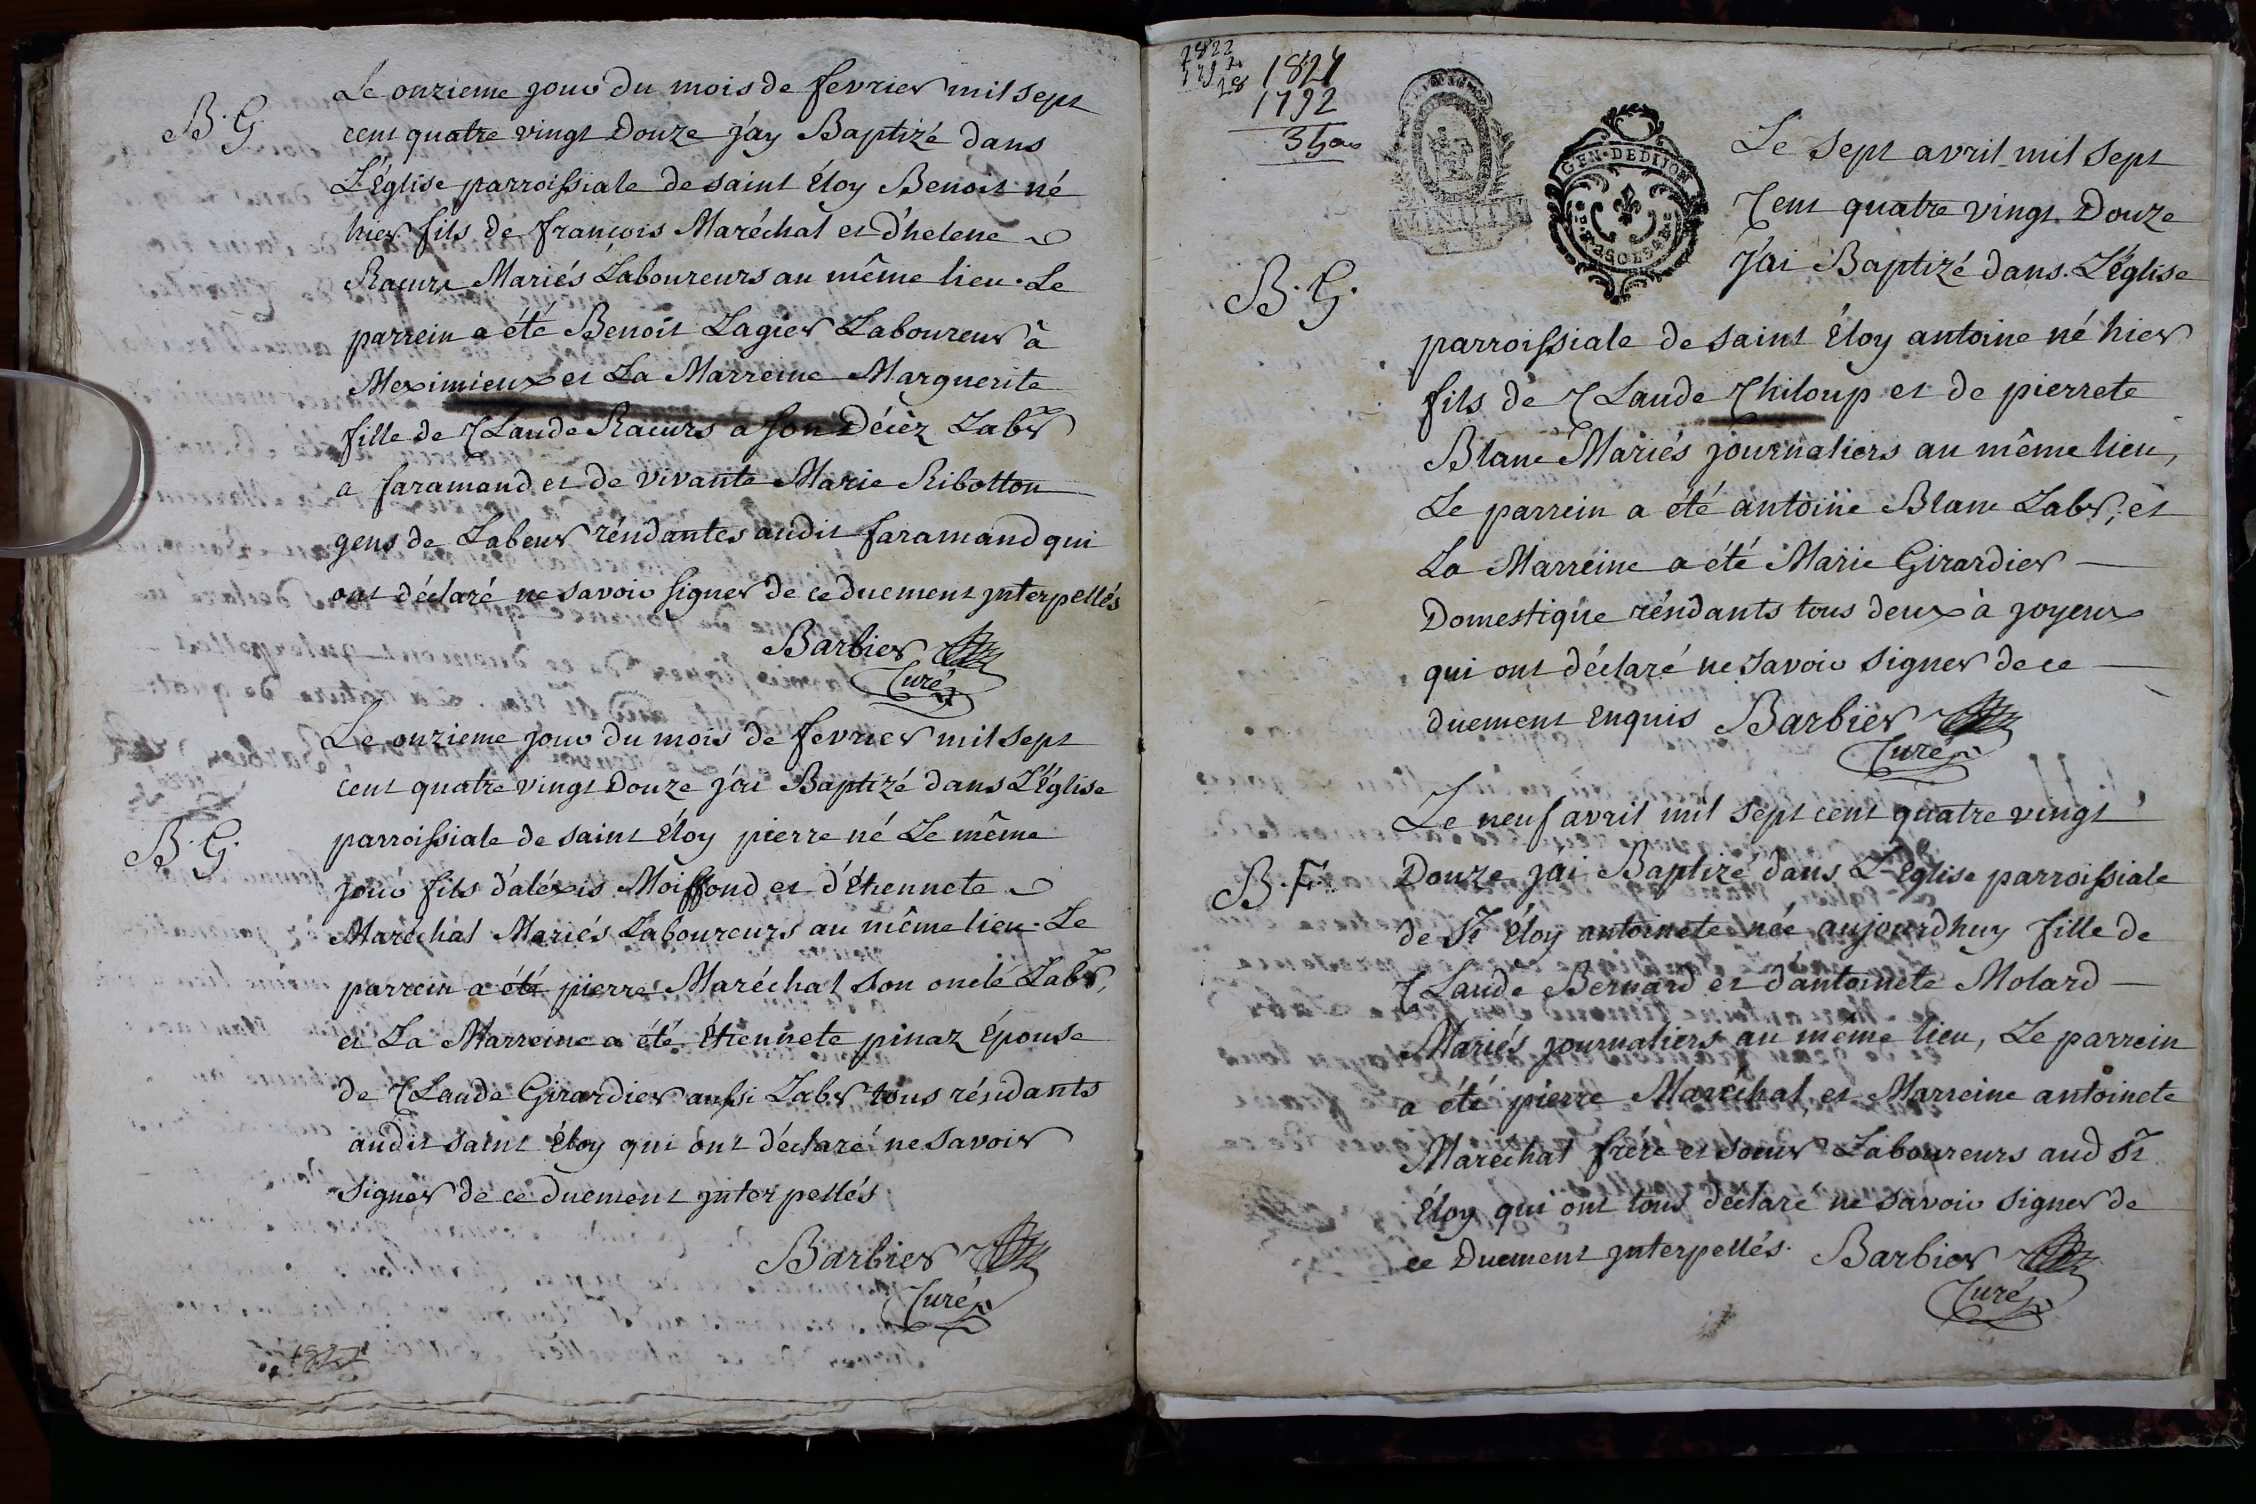 Le onzieme jour du mois de fevrier mil sept
B. G. cent quatre vingt Douze j'ay Baptizé dans
L'église parroissiale de saint Éloy Benoit né
hier fils de françois Maréchal et d'helene
Racurs Mariés Laboureurs au même lieu. Le
parrein a été Benoît Lagier Laboureur à
Meximieux et La Marreine Marguerite
fille de Claude Racurs a son Déiéz Labr
a faramand et de vivante Marie Ribotton
gens de Labeur résidantes audit faramand qui
ont déclaré ne savoir signer de ce duement jnterpellés
Barbier
Curé
Le onzieme jour du mois de fevrier mil sept
cent quatre vingt Douze j'ai Baptizé dans L'Église
B. G. parroissiale de saint Éloy pierre né Le même
jour fils d'aléxis Moiffond et d'Étiennete
Maréchal Mariés Laboureurs au même lieu. Le
parrein a été pierre Maréchal son oncle Labr,
et La Marreine a été Étiennete pinaz Épouse
de Claude Girardier aussi Labr tous résidants
audit saint Éloy qui ont déclaré ne savoir
signer de ce duement jnterpellés
Barbier
Curé
1822
1792
28
1824
1792
GEN. DE DIJON
MINUTE
Le sept avril mil sept
Cent quatre vingt Douze
B. G. j'ai Baptizé dans L'église
parroissiale de saint Éloy antoine né hier
fils de Claude Chiloup et de pierrete
Blanc Mariés journaliers au même lieu,
Le parrein a été antoine Blanc Labr, et
La Marreine a été Marie Girardier
Domestique résidants tous deux à joyeux
qui ont déclaré ne savoir signer de ce
duement enquis Barbier
Curé
Le neuf avril mil sept cent quatre vingt
B. F. Douze j'ai Baptizé dans L'Église parroissiale
de St Éloy antoinete née aujourdhuy fille de
Claude Bernard et d'antoinete Molard
Mariés journaliers au même lieu, Le parrein
a été pierre Maréchal, et Marreine antoinete
Maréchal frére et soeur Laboureurs aud St
Éloy qui ont tous déclaré ne savoir signer de
ce Duement jnterpellés. Barbier
Curé